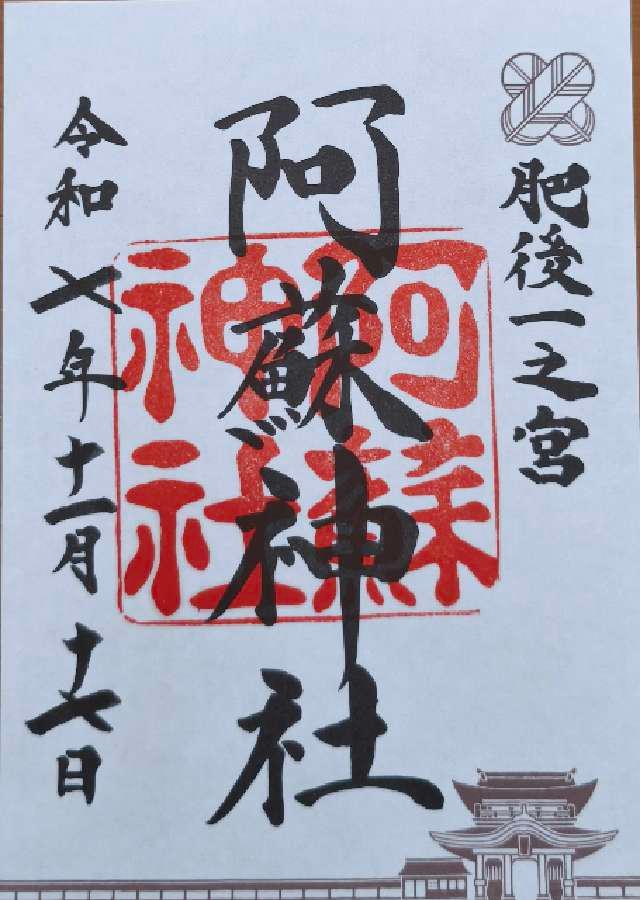 肥後一之宮
阿蘇神社
阿蘇神社
令和七年十一月十七日